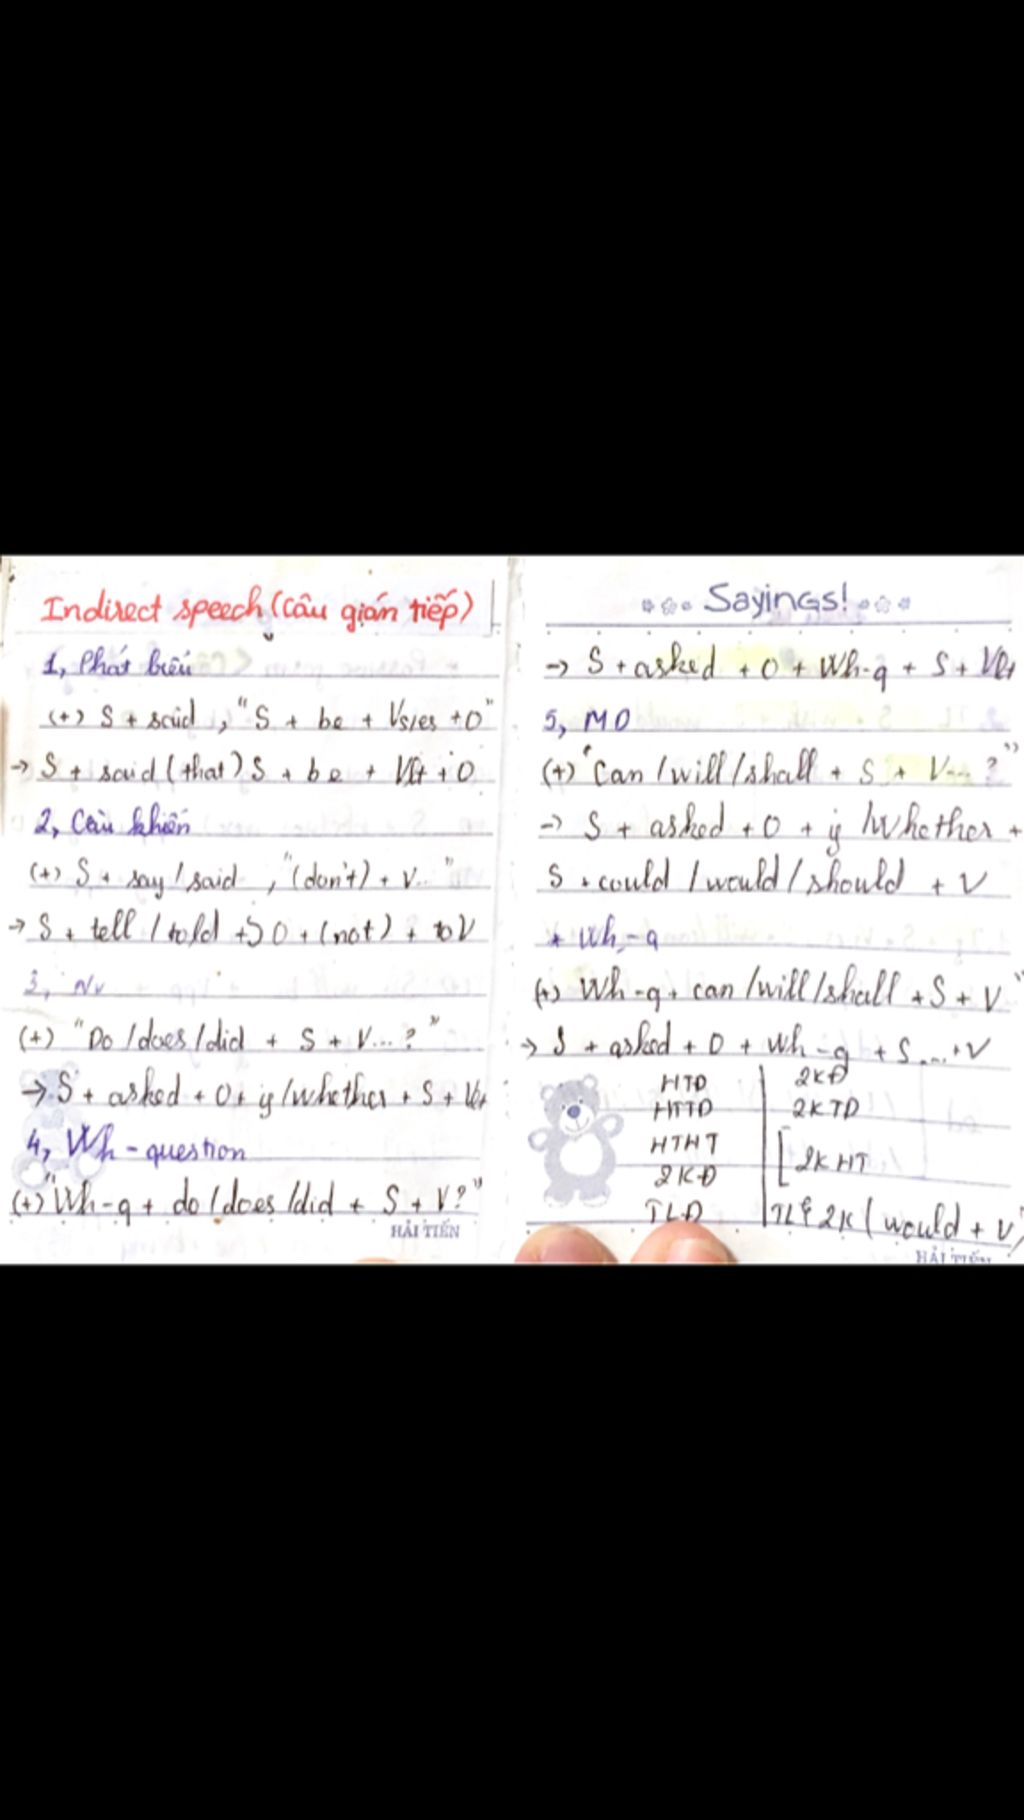 Indirect speech (câu gián tiếp)
1, Phát biểu
(+) S + said , "S + be + Vs/es + O"
→ S + said (that) S + be + Vqk + O
2, Cầu khiến
(+) S + say / said , "(don't) + V.. "
→ S + tell / told + O + (not) + to V
3, Nv
(+) "Do /does /did + S + V...? "
→ S + asked + O + if /whether + S + Vqk
4, Wh - question
(+) "Wh-q + do /does /did + S + V? "
HẢI TIẾN
Sayings!
→ S + asked + O + Wh-q + S + Vqk
5, MO
(+) "Can /will /shall + S + V... ? "
→ S + asked + O + if /whether +
S + could / would / should + V
* Wh - q
(+) Wh -q + can /will /shall + S + V "
→ S + asked + O + Wh -q + S .... + V
HTD 2KĐ
HTTD 2KTD
HTHT [ 2K HT
2KĐ
TLĐ TL 2K ( would + V )
HẢI TIẾN